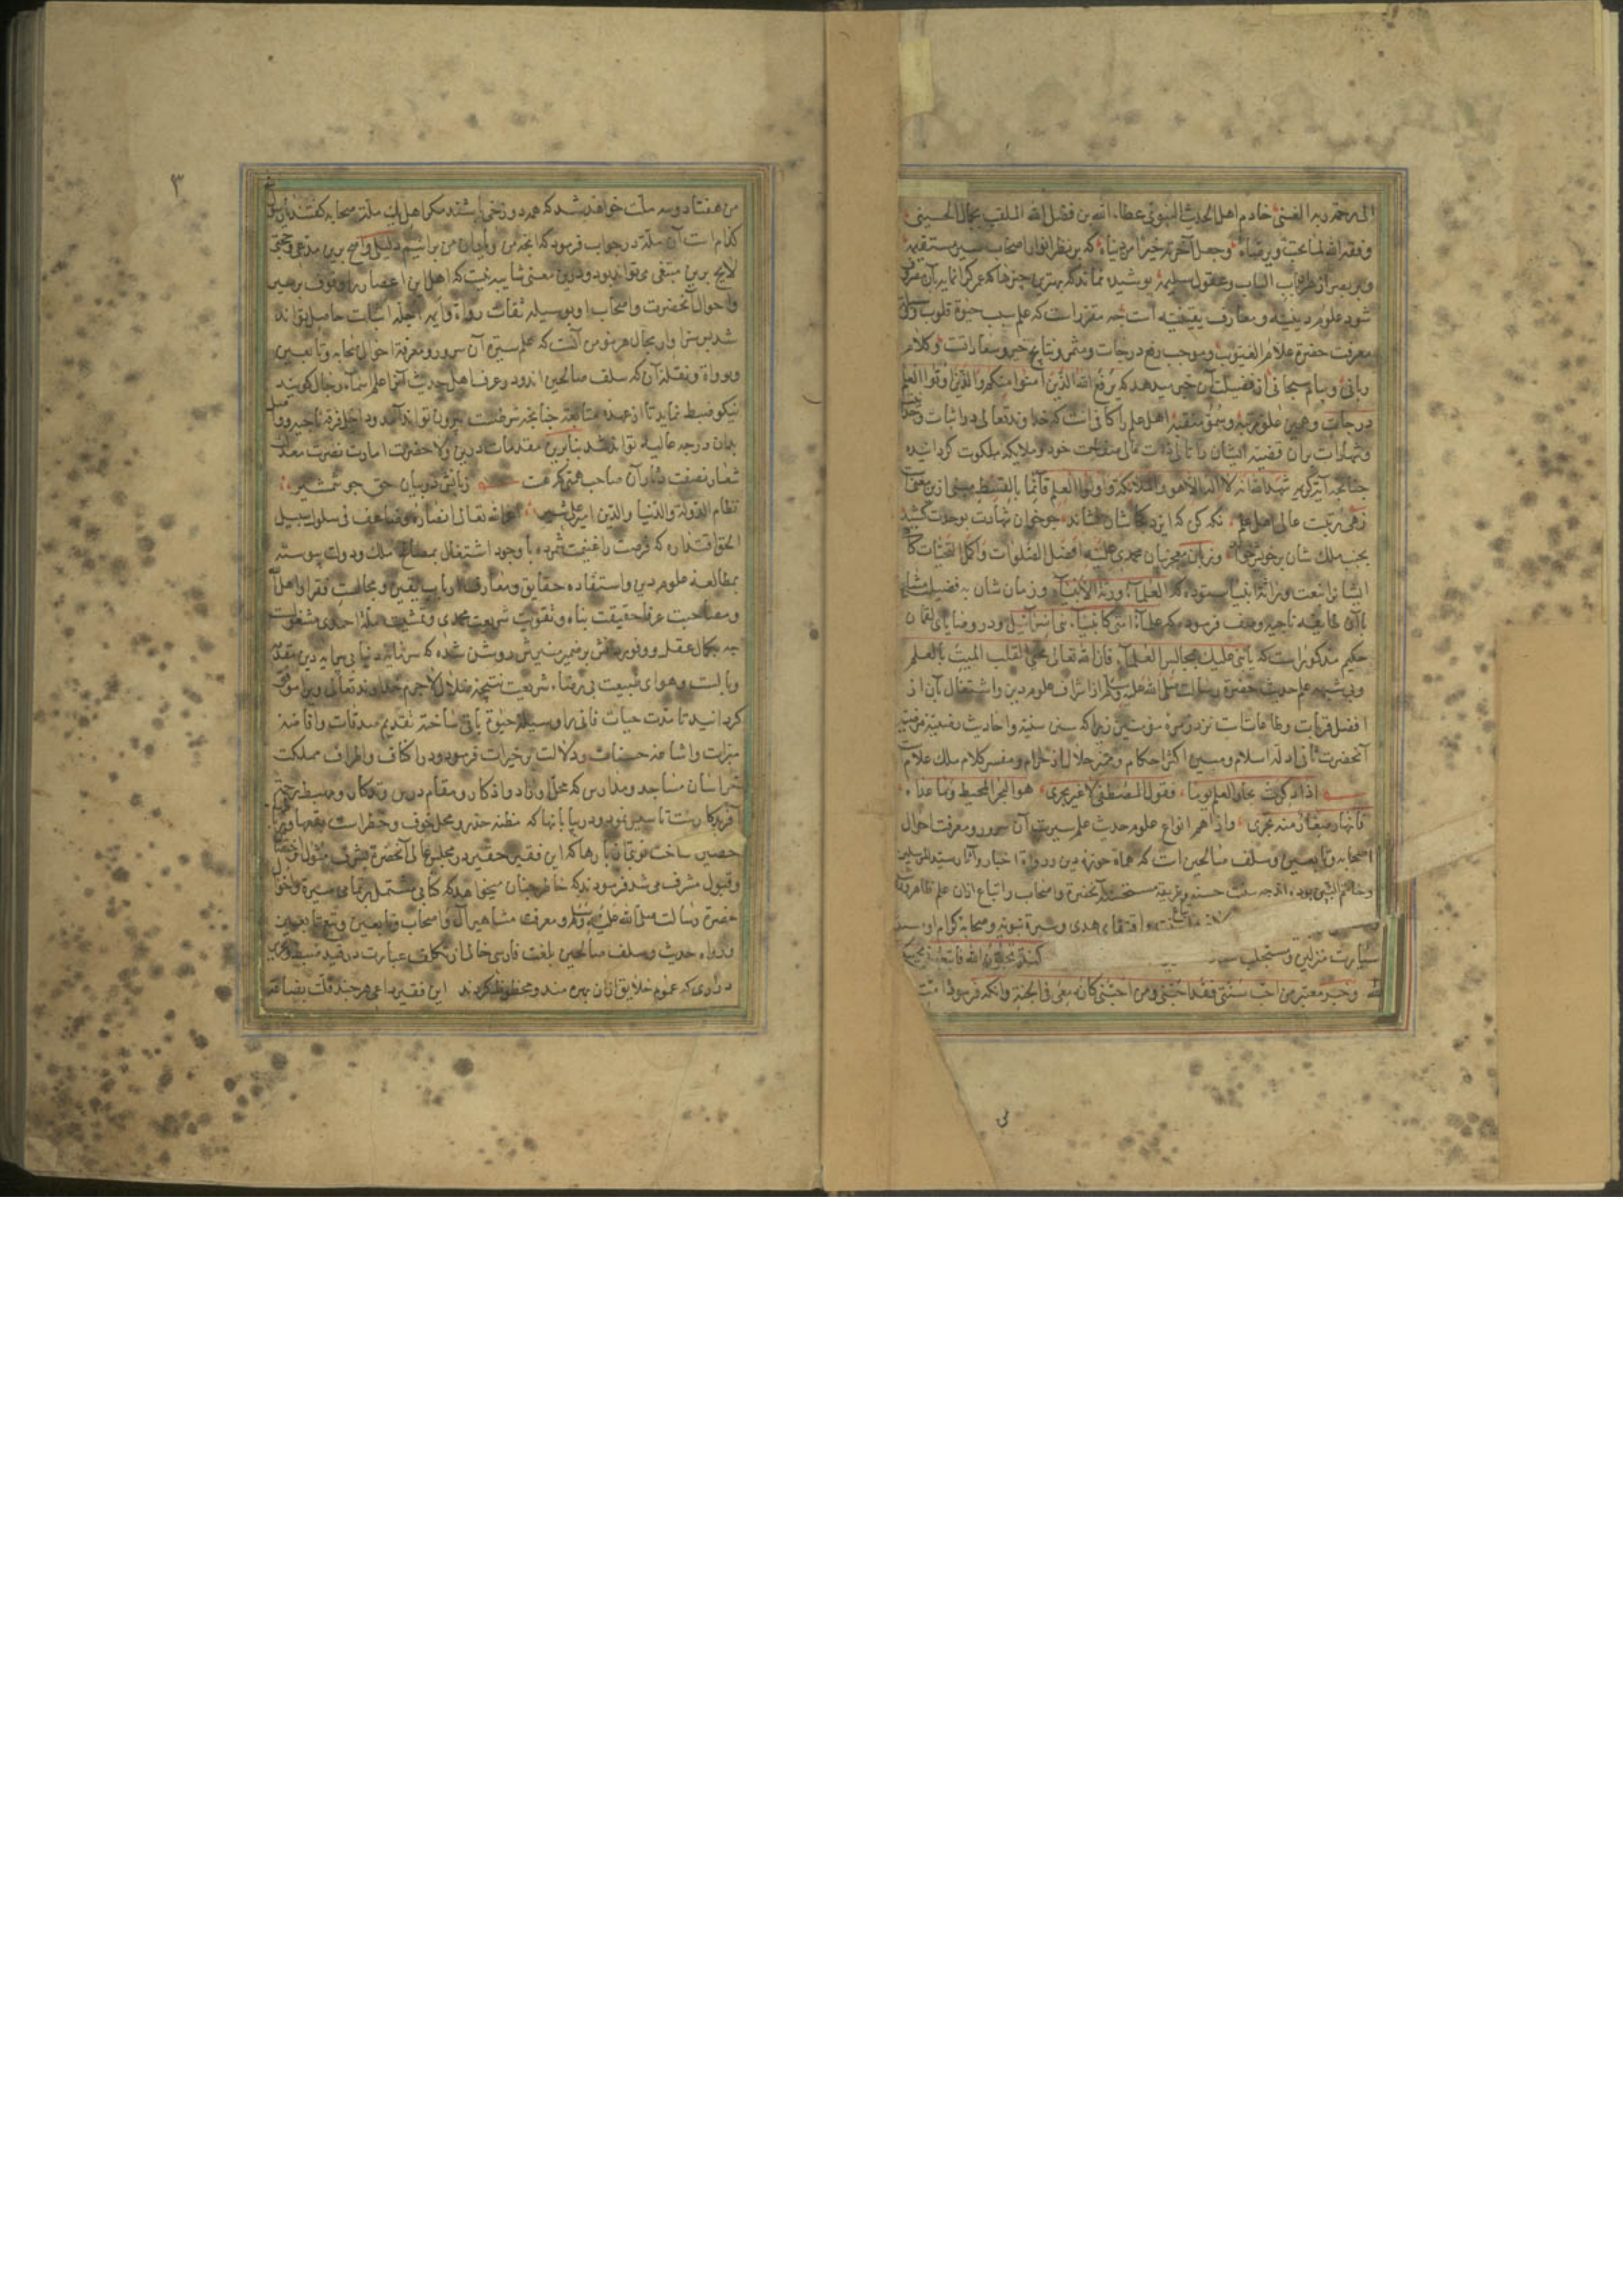 الی رحمة ربه الغنی خادم اهل الحدیث النبوی عطاء الله بن فضل الله الملقب بجمال الحسینی
وفقه الله لما یحب ویرضاه وجعل آخرته خیرا من دنیاه که بر نظر انوار اصحاب سیر مستقیمه
الباب وعقول سلیمه پوشیده نماند که بهترین چیزی که
شود علوم دینیه ومعارف یقینیه است چه مقرر است که علم سبب حیوة قلوب
معرفت حضرة علام الغیوب وموجب رفع درجات ومثمر ونتایج خیر وسعادات است وکلام
ربانی از فضیلت آن خبر میدهد که یرفع الله الذین امنوا منکم والذین اوتوا العلم
درجات وهمین علو مرتبه وسمو منقبه اهل علم را کافی است که خداوند تعالی در اثبات
وشهادات بر آن قضیه ایشان را تالی ذات عالی خود وملایکه ملکوت گردانیده
چنانچه آیة کریمه شهد الله انه لا اله الا هو والملائکة واولوا العلم قائما بالقسط مبنی ازین معنی است
زهی رتبت عالی اهل علم نگه کن که ایزد کجاشان نشاند چو خوان شهادت بوحدت کشید
بجنب ملک شان بر خویش خواند وبزبان معجز بیان محمدی علیه افضل الصلوات واکمل التحیات
ایشان را بنعت وراثة انبیا ستوده که العلماء ورثة الانبیاء وزمان شان به فضیلت
بآن طایفه ناجیه وصف فرموده که علماء امتی کانبیاء بنی اسرائیل ودر وصایای لقمان
حکیم مذکور است که یا بنی علیک بمجالس العلماء فان الله تعالی یحیی القلب المیت بالعلم
وبی شبهه علم حدیث حضرة رسالت صلی الله علیه وسلم از اشراف علوم دین واشتغال بآن از
افضل قربات وطاعات است نزد زمره مؤمنین زیرا که سنن سنیه واحادیث
آنحضرت ثانی ادله اسلام ومبین اکثر احکام وممیز حلال از حرام ومفسر کلام ملک علام است
اذا ذکرت بحار العلم یوما فقول المصطفی لا غیر یجری هو البحر المحیط وما عداه
فانهار صغار منه تجری واز اهم انواع علوم حدیث علم سیرت آن سرور ومعرفت احوال
اصحابه وتابعین وسلف صالحین است که حماة حوزه دین ورواة اخبار وآثار سید المرسلین
وخاتم النبیین بوده اند چه سنت حسنه وطریقه مستحسنه آنحضرة واصحاب واتباع ازان علم ظاهر
اقتفای هدی وسیرة نبویه وصحابه کرام او
کنتم تحبون الله فاتبعونی یحببکم
الله وخبر معتبر من احب سنتی فقد احبنی ومن احبنی کان معی فی الجنة وآنکه فرمود امت
۳
من هفتاد وسه ملت خواهند شد که همه دوزخی باشند مگر اهل یک ملت صحابه گفتند یا رسول
کدام است آن ملة در جواب فرمود که آنچه من ویاران من برانیم دلیلی واضح برین مدعی وحجتی
لایح برین مبتغی می تواند بود ودرین معنی شایبه نیست که اهل این اعصار را وقوف بر سیر
واحوال آنحضرت واصحاب او بوسیله ثقات رواة واثبات حاصل تواند
شد پس سزاوار بحال هر مؤمن آنست که علم سیرة آن سرور ومعرفة احوال صحابه وتابعین
ورواة ونقله آن که سلف صالحین اند ودر عرف اهل حدیث آنرا علم اسماء رجال گویند
نیکو ضبط نماید تا از عهده متابعة چنانچه شرطست بیرون تواند آمد وداخل فرقه ناجیه
بدان درجه عالیه تواند شد بنابرین مقدمات درین ولا حضرت امارت نصرت
شعار نصفت دثار آن صاحب همتی که هست زبانش در بیان حق چو شمشیر
نظام الدولة والدنیا والدین امیر علیشیر اعز الله تعالی انصاره وضاعف فی سلوک سبیل
الحق اقتداره که فرصت را غنیمت شمرده با وجود اشتغال بمصالح ملک ودولت پیوسته
بمطالعه علوم دین واستفاده حقایق ومعارف ارباب یقین ومجالست فقرا واهل
ومصاحبت عرفا حقیقت پناه وتقویت شریعت محمدی وتمشیت ملة احمدی مشغول
چه بکمال عقل ووفور دانش بر ضمیر منیرش روشن شده که سرمایه دنیا بی سرمایه دین
وبالست وهوای طبیعت بی رضاء شریعت نتیجه ضلال لاجرم خداوند تعالی ویرا موفق
گردانید تا مدت حیات فانی را وسیله حیوة باقی ساخته بتقدیم صدقات وافاضه
مبرات واشاعه حسنات ودلالت بر خیرات فرمود ودر اکناف واطراف مملکت
خراسان مساجد ومدارس که محل اوراد واذکار ومقام درس وتکرار ومهبط رحمت
آفریدگار است تأسیس نمود ودر بیابانها که مظنه حذر ومحل خوف وخطر است
حصین ساخت بارها که این فقیر حقیر در مجلس عالی آنحضرة بشرف مثول
وقبول مشرف می شد فرمودند که خاطر چنان میخواهد که کتابی مشتمل بر تمامی سیرة
حضرة رسالت صلی الله علیه وسلم ومعرفت مشاهیر آل واصحاب وتابعین وتبع تابعین
ورواة حدیث وسلف صالحین بلغت فارسی خالی از تکلف عبارت در قید ضبط
در آری که عموم خلایق ازان بهره مند ومحظوظ گردند این فقیر داعی هر چند قلت بضاعة